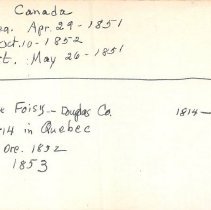 Canada
ea. Apr. 29 - 1851
Oct. 10 - 1852
rt. May 26 - 1851
Foisy - Douglas Co. 1814 -
14 in Quebec
Ore. 1852
1853